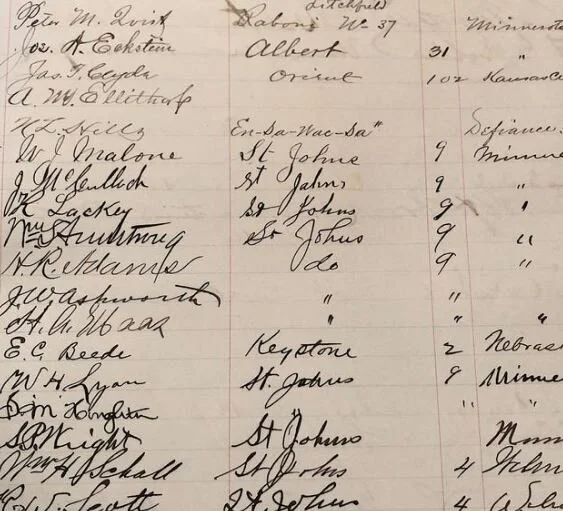 Litchfield
Peter M. Qvist Raboni No 37 Minnesota
Jos. A. Eckstein Albert 31 "
Jas. T. Clyde Orient 102 Kansas C
A. M. Ellithorp
En-Da-Wac-Da" Defiance
W J Malone St Johns 9 Minne
J McCulloch St Johns 9 "
K Lackey St Johns 9 "
Wm St Johns 9 "
H. R. Adams do 9 "
J. W. Ashworth " "
H. A. Maas " " "
E. C. Beede Keystone 2 Nebras
W H Lyon St. Johns 9 Minne
" " "
S. P. Wright St Johns Minn
Wm H Schall St Johns 4
C. W. Scott St Johns 4